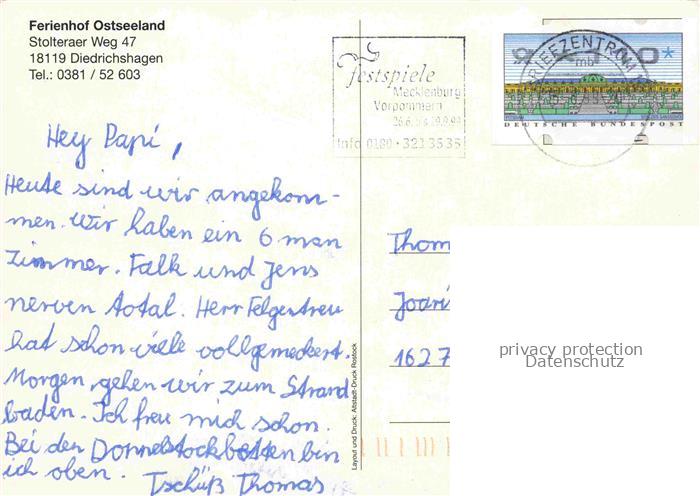 Ferienhof Ostseeland
Stolteraer Weg 47
18119 Diedrichshagen
Tel.: 0381 / 52 603
festspiele
Mecklenburg
Vorpommern
Info 0180 · 323 35 35
BRIEFZENTRUM
mb
DEUTSCHE BUNDESPOST
Hey Papi,
Heute sind wir angekom-
men. Wir haben ein 6 man
Zimmer. Falk und Jens
nerven total. Herr Felgentreu
hat schon viele vollgemeckert.
Morgen gehen wir zum Strand
baden. Ich freu mich schon.
Bei den Donnelstockbetten bin
ich oben. Tschüß Thomas
Thom
Joari
1627
privacy protection
Datenschutz
Layout und Druck: Altstadt-Druck Rostock